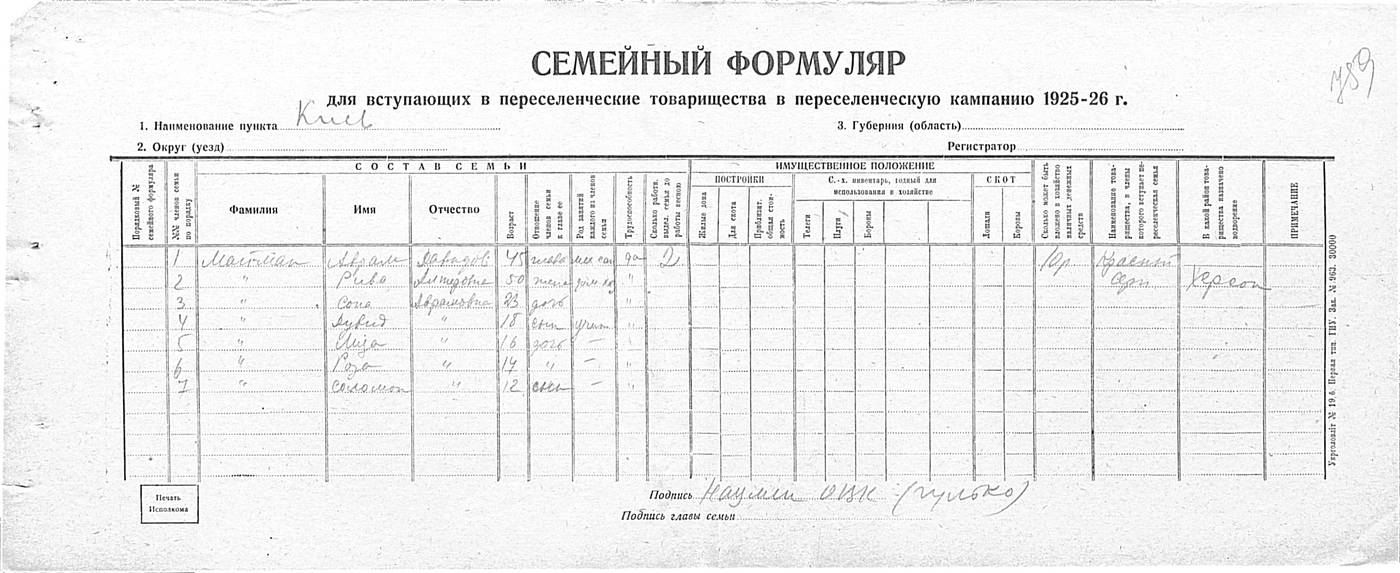 789
СЕМЕЙНЫЙ ФОРМУЛЯР
для вступающих в переселенческие товарищества в переселенческую кампанию 1925-26 г.
1. Наименование пункта Киев
3. Губерния (область)
2. Округ (уезд)
Регистратор
Порядковый № семейного формуляра
№№ членов семьи по порядку
СОСТАВ СЕМЬИ
Фамилия
Имя
Отчество
Возраст
Отношение членов семьи к главе ее
Род занятий каждого из членов семьи
Трудоспособность
Сколько работн. выдел. семья до работы весною
ИМУЩЕСТВЕННОЕ ПОЛОЖЕНИЕ
ПОСТРОЙКИ
Жилые дома
Для скота
Приблизит. общая стоимость
С.-х. инвентарь, годный для использования в хозяйстве
Телеги
Плуги
Бороны
СКОТ
Лошади
Коровы
Сколько может быть вложено в хозяйство наличных денежных средств
Наименование товарищества, в члены которого вступает переселенческая семья
В какой район товарищества назначено водворение
ПРИМЕЧАНИЕ
1 Абрам Давидов 45 глава да 2 10р Красный
2 " Рива 50 жена " серп Херсон
3 " Соня Абрамовна 23 дочь "
4 " Дувид " 18 сын "
5 " " 16 дочь — "
6 " Роза " 14 " — "
7 " Соломон " 12 сын — "
Печать Исполкома
Подпись ОВК (Гулько)
Подпись главы семьи
Укрголовліт № 19.6. Перша тип. ГИУ. Зак. № 963. 30000